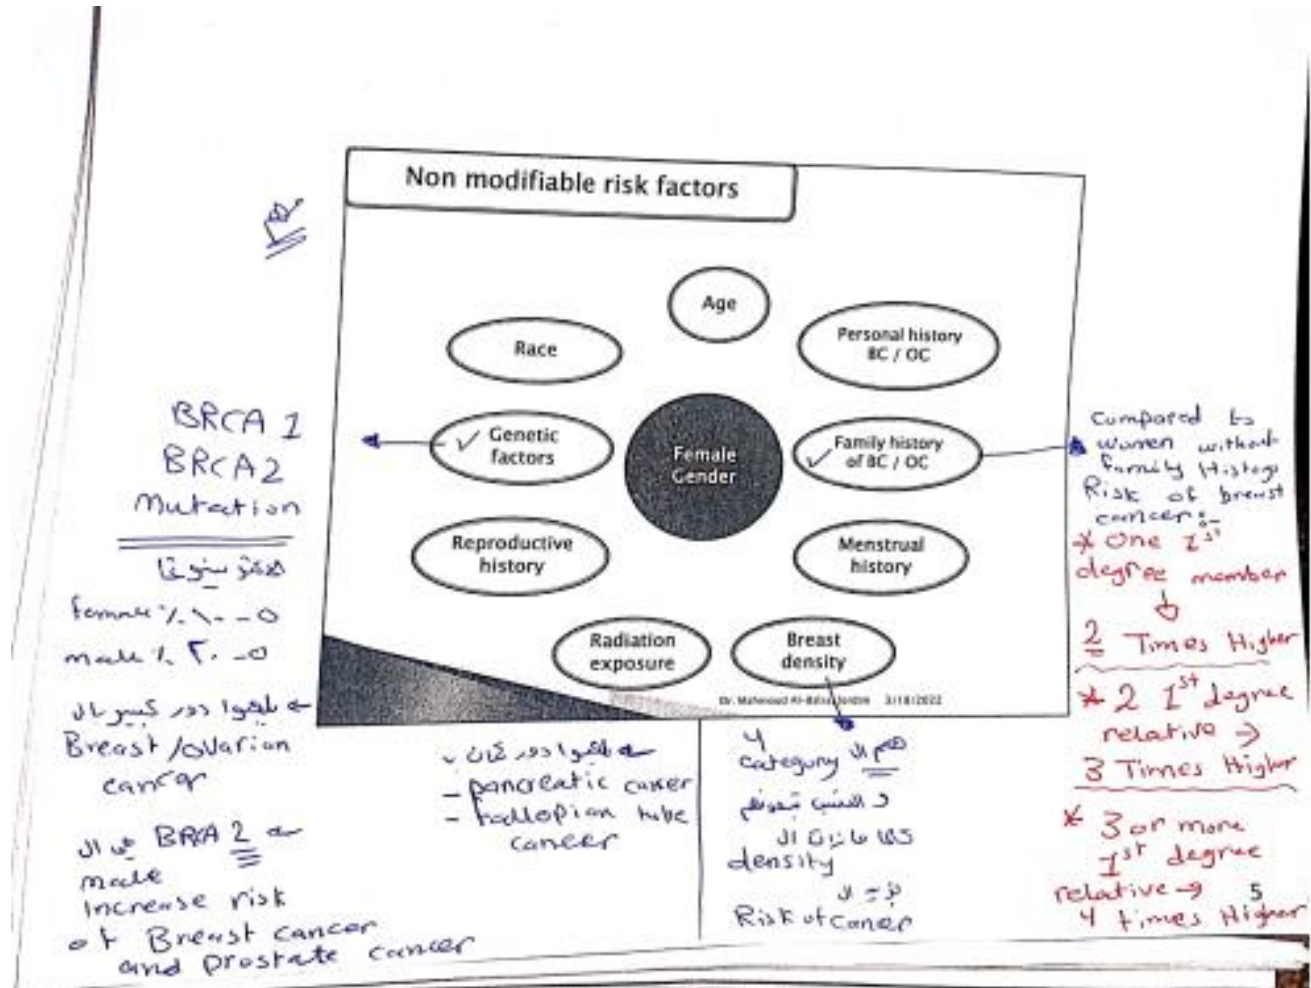 Non modifiable risk factors
Age
Race
Personal history
BC / OC
Genetic
factors
Female
Gender
Family history
of BC / OC
Reproductive
history
Menstrual
history
Radiation
exposure
Breast
density
3/18/2022
BRCA 1
BRCA2
Mutation
female ٪ ١٠ - ٥
male ٪ ٢٠ - ٥
دور كبير بال
Breast / ovarian
cancer
BRCA 2 في ال
male
Increase risk
of Breast cancer
and prostate cancer
دور كمان ب
- pancreatic cancer
- fallopian tube
cancer
4
category هم ال
كلما ال
density
ال
Risk of Cancer
Compared to
women without
family History
Risk of breast
cancer:-
* One 1st
degree member
2 Times Higher
* 2 1st degree
relative →
3 Times Higher
* 3 or more
1st degree
relative → 5
4 times Higher